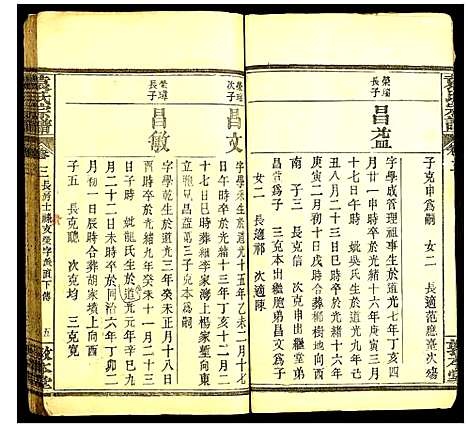 子克申為嗣 女二 長適范應喜次塲
榮璿長子
昌益
字學成管理祖事生於道光七年丁亥四
月廿一申時卒於光緒十六年庚寅三月
十七日午時 妣吳氏生於道光十七年
丑八月二十七日戌時卒於光緒十六年
庚寅二月初十日戌時合葬樹樹地向
子三 長克信 次克申出繼堂弟
昌文為子 三克本出繼胞弟昌文為子
女二 長適祁 次適陳
榮璿次子
昌文
字學 生於道光十五年乙未二月十七
日午時卒於光緒十三年丁亥十二月二
十七日巳時葬祖李家灣上楊家塹向東
取昌益第三子克本為嗣
榮璋長子
昌敏
字學乾生於道光三年癸未正月十八日
酉時卒於光緒九年癸未十一月二十三
日子時 妣龍氏生於道光元年辛巳九
月二十二日未時卒於同治六年丁卯二
月初一日辰時合葬胡家塝上向酉
子五 長克聰 次克均 三克寬
袁氏宗譜
卷三
長房士祿支榮字派直下傳
五
敦本堂